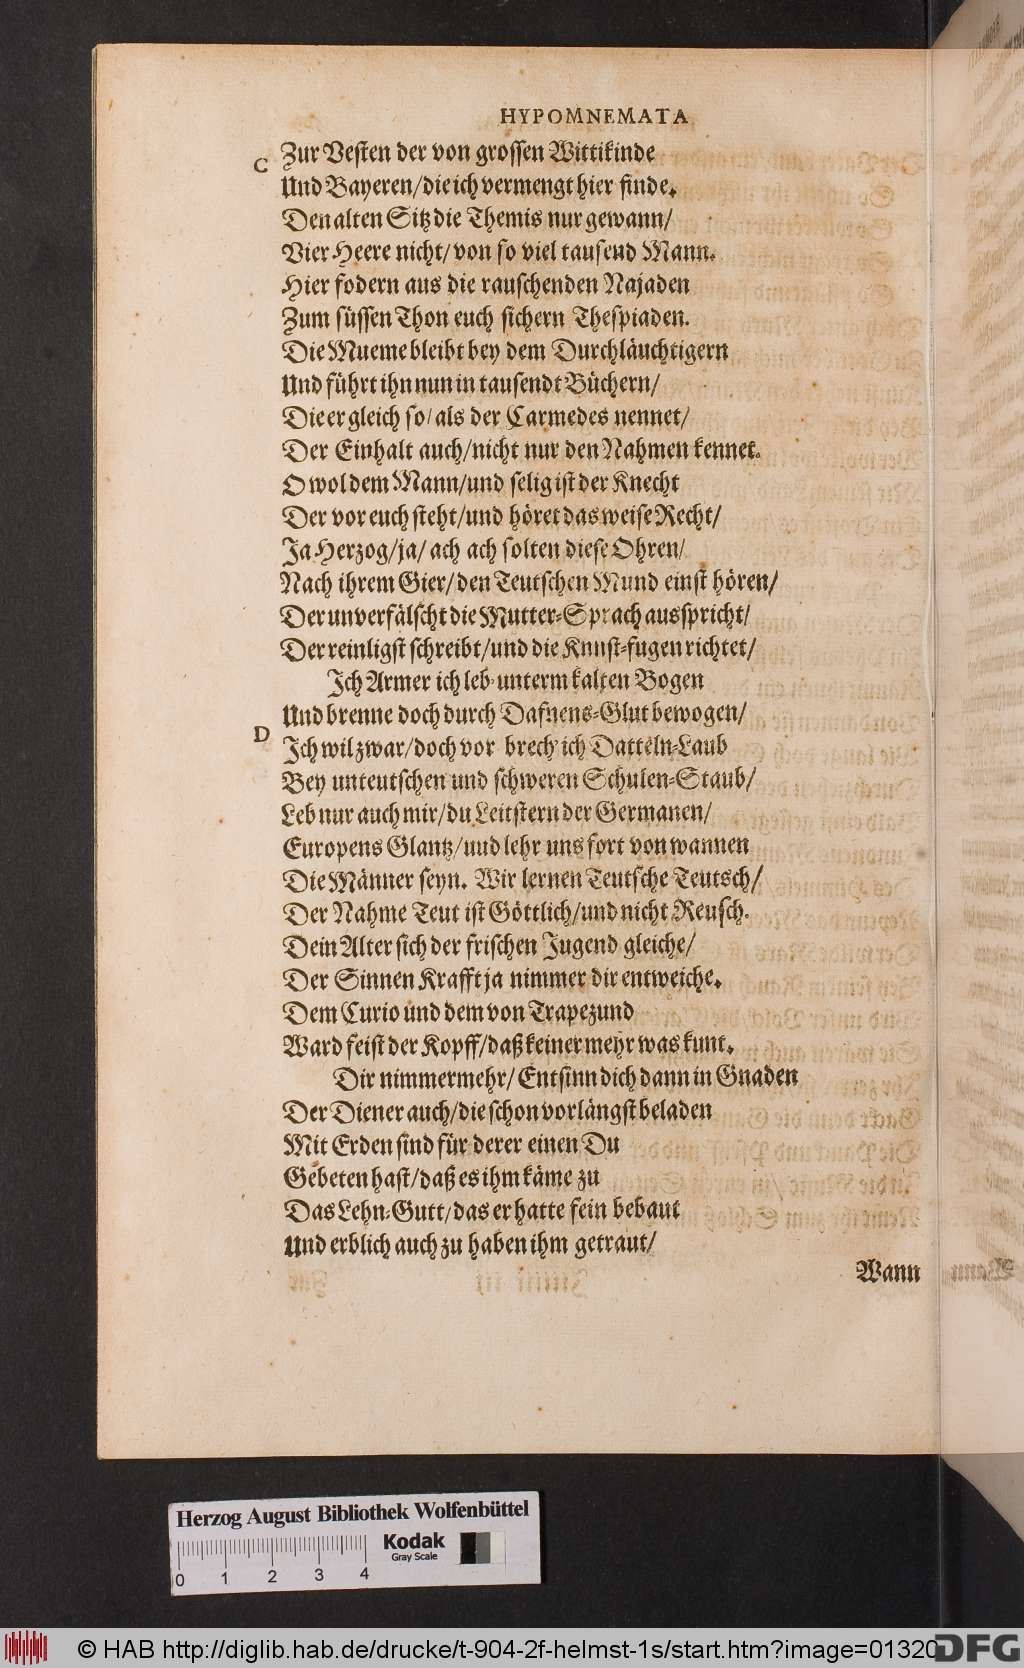 HYPOMNEMATA
C Zur Vesten der von grossen Wittikinde
Und Bayeren/die ich vermengt hier finde.
Den alten Sitz die Themis nur gewann/
Vier Heere nicht/von so viel tausend Mann.
Hier fodern aus die rauschenden Najaden
Zum süssen Thon euch sichern Thespiaden.
Die Mueme bleibt bey dem Durchläuchtigern
Und führt ihn nun in tausendt Büchern/
Die er gleich so/als der Carmedes nennet/
Der Einhalt auch/nicht nur den Nahmen kennet.
O wol dem Mann/und selig ist der Knecht
Der vor euch steht/und höret das weise Recht/
Ja Herzog/ja/ach ach solten diese Ohren/
Nach ihrem Gier/den Teutschen Mund einst hören/
Der unverfälscht die Mutter-Sprach ausspricht/
Der reinligst schreibt/und die Knnst-fugen richtet/
Ich Armer ich leb unterm kalten Bogen
Und brenne doch durch Dafnens-Glut bewogen/
D Ich wil zwar/doch vor brech ich Datteln-Laub
Bey unteutschen und schweren Schulen-Staub/
Leb nur auch mir/du Leitstern der Germanen/
Europens Glantz/uud lehr uns fort von wannen
Die Männer seyn. Wir lernen Teutsche Teutsch/
Der Nahme Teut ist Göttlich/und nicht Reusch.
Dein Alter sich der frischen Jugend gleiche/
Der Sinnen Krafft ja nimmer dir entweiche.
Dem Curio und dem von Trapezund
Ward feist der Kopff/daß keiner mehr was kunt.
Dir nimmermehr/Entsinn dich dann in Gnaden
Der Diener auch/die schon vorlängst beladen
Mit Erden sind für derer einen Du
Gebeten hast/daß es ihm käme zu
Das Lehn-Gutt/das er hatte fein bebaut
Und erblich auch zu haben ihm getraut/
Wann
Herzog August Bibliothek Wolfenbüttel
Kodak
Gray Scale
0 1 2 3 4
© HAB http://diglib.hab.de/drucke/t-904-2f-helmst-1s/start.htm?image=01320
DFG